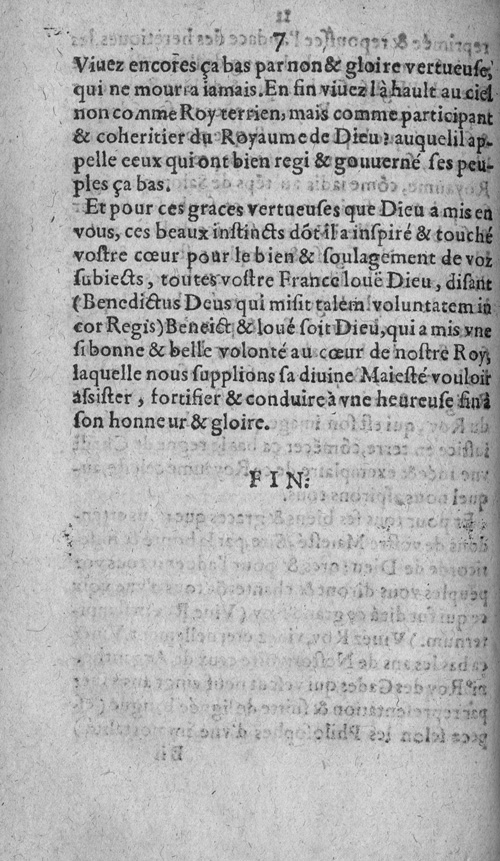 7
Viuez encores ça bas par non & gloire vertueuse,
qui ne mourra iamais. En fin viuez là hault au ciel
non comme Roy terrien, mais comme participant
& coheritier du Royaume de Dieu: auquel il ap-
pelle ceux qui ont bien regi & gouuerné ses peu-
ples ça bas.
Et pour ces graces vertueuses que Dieu a mis en
vous, ces beaux instincts dõt il a inspiré & touché
vostre cœur pour le bien & soulagement de voz
subiects, toutes vostre France louë Dieu, disant
(Benedictus Deus qui misit talem voluntatem in
cor Regis) Beneict & loué soit Dieu, qui a mis vne
si bonne & belle volonté au cœur de nostre Roy,
laquelle nous supplions sa diuine Maiesté vouloir
assister, fortifier & conduire à vne heureuse fin à
son honneur & gloire.
FIN.